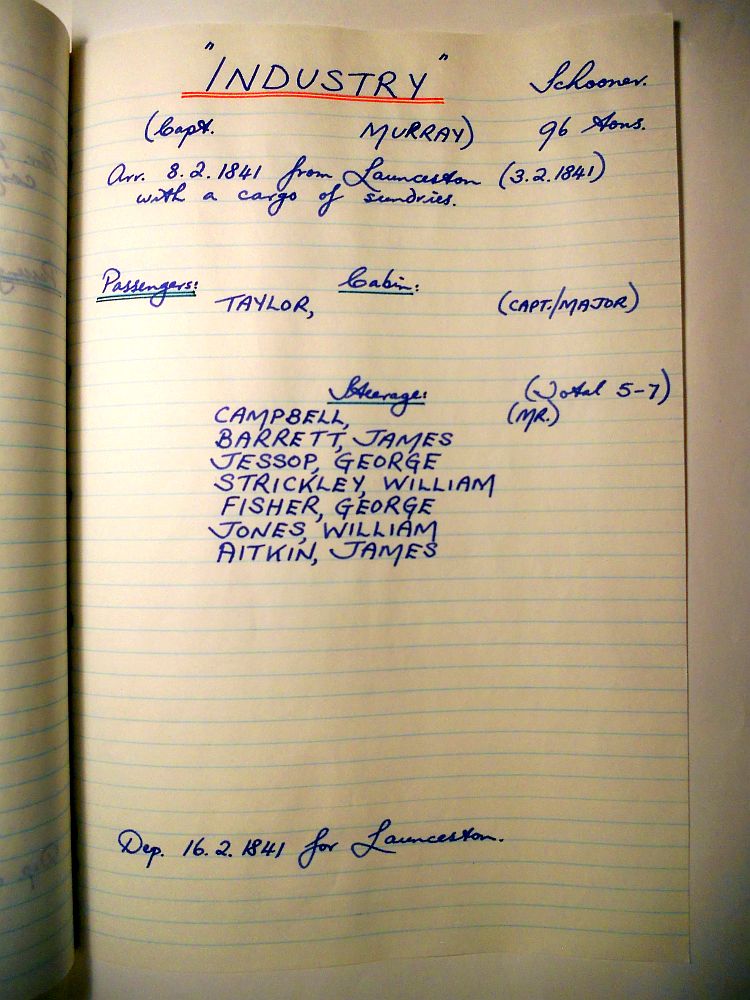 "INDUSTRY" Schooner.
(Capt. MURRAY) 96 tons.
Arr. 8.2.1841 from Launceston (3.2.1841)
with a cargo of sundries.
Passengers: Cabin:
TAYLOR, (CAPT./MAJOR)
Steerage: (Total 5-7)
CAMPBELL, (MR.)
BARRETT, JAMES
JESSOP, GEORGE
STRICKLEY, WILLIAM
FISHER, GEORGE
JONES, WILLIAM
AITKIN, JAMES
Dep. 16.2.1841 for Launceston.